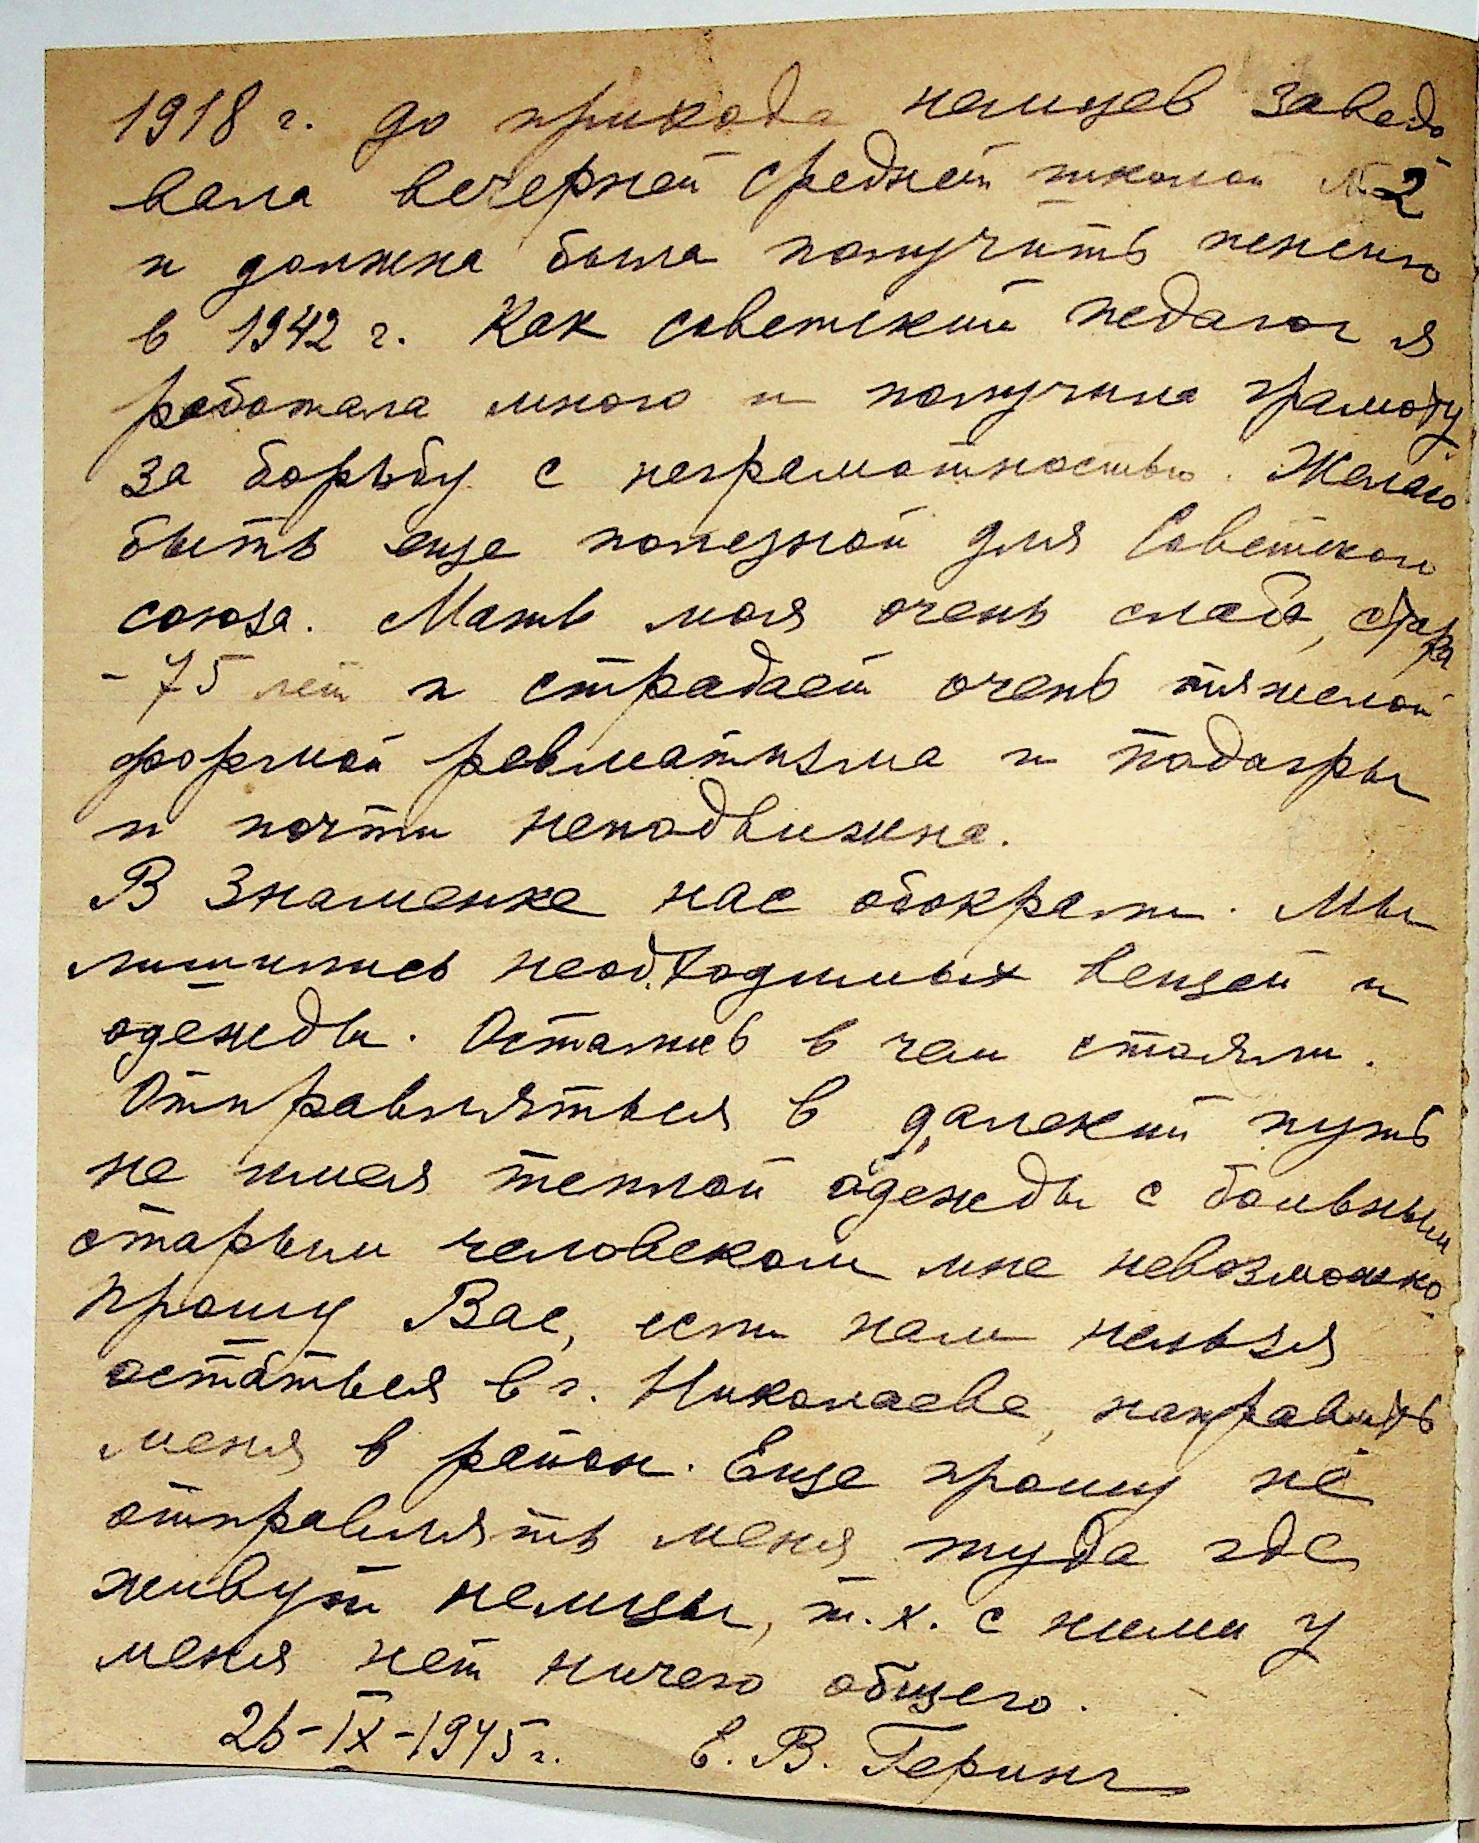 1918 г. до прихода немцев заведо
вала вечерней средней школой № 2
и должна была получить пенсию
в 1942 г. Как советский педагог я
работала много и получила грамоту
за борьбу с неграмотностью. Желаю
быть еще полезной для Советского
союза. Мать моя очень слаба, стара
- 75 лет и страдает очень тяжелой
формой ревматизма и подагры
и почти неподвижна.
В Знаменке нас обокрали. Мы
лишились необходимых вещей и
одежды. Остались в чем стояли.
Отправляться в далекий путь
не имея теплой одежды с больным
старым человеком мне невозможно.
Прошу Вас, если нам нельзя
остаться в г. Николаеве, направить
меня в район. Еще прошу не
отправлять меня туда где
живут немцы, т.к. с ними у
меня нет ничего общего.
26-IX-1945 г. Е. В. Геринг